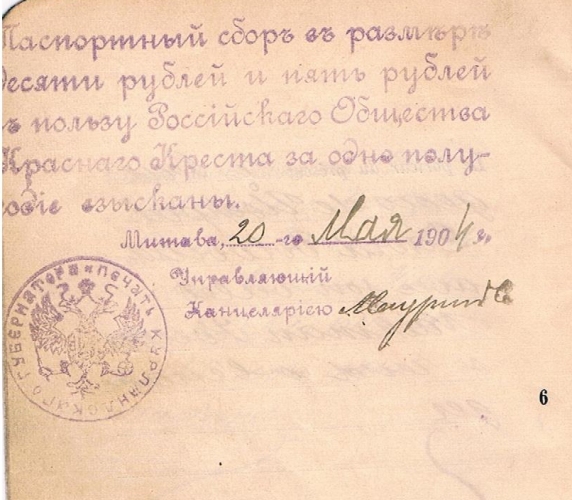 Паспортный сборъ въ размѣрѣ
десяти рублей и пять рублей
въ пользу Россійскаго Общества
Краснаго Креста за одно полу-
годіе взысканы.
Митава, 20 -го Мая 1904 г.
Управляющій
Канцеляріею
ПЕЧАТЬ КУРЛЯНДСКАГО ГУБЕРНАТОРА
6